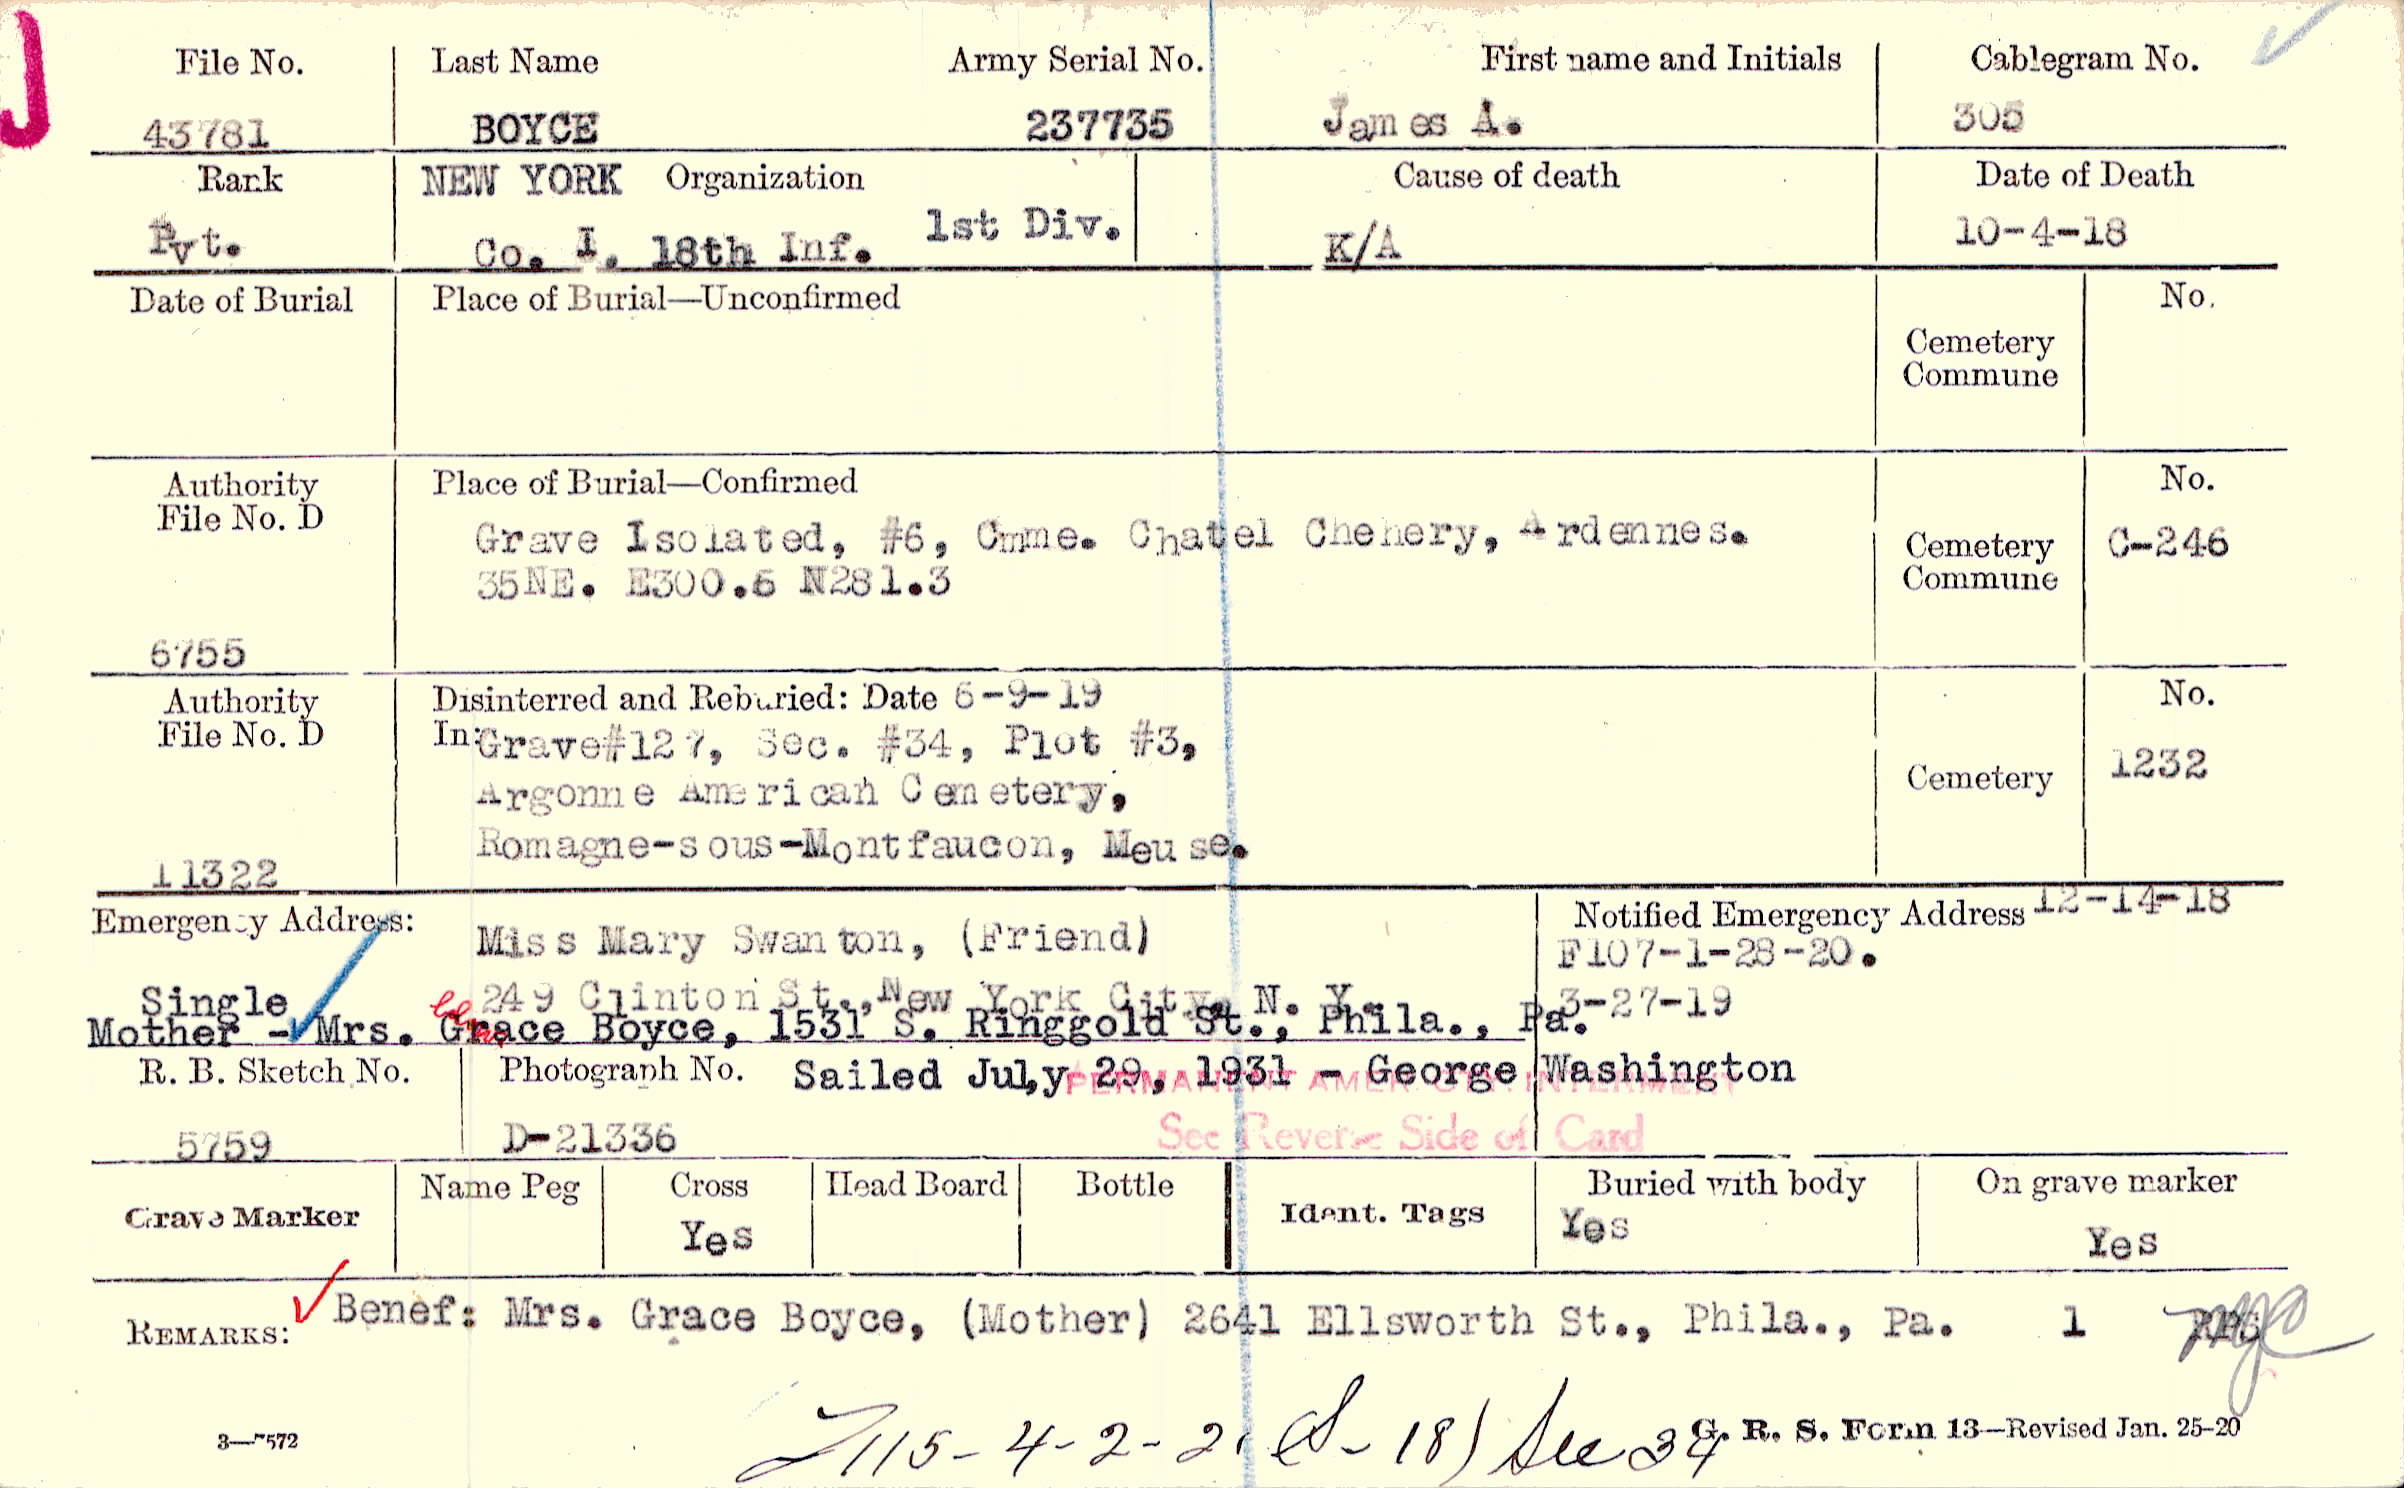 J
File No. Last Name Army Serial No. First name and Initials Cablegram No.
43781 BOYCE 237735 James A. 305
Rank NEW YORK Organization Cause of death Date of Death
Pvt. Co. I. 18th Inf. 1st Div. K/A 10-4-18
Date of Burial Place of Burial—Unconfirmed No.
Cemetery
Commune
Authority Place of Burial—Confirmed No.
File No. D
Grave Isolated, #6, Cmme. Chatel Chehery, Ardennes. Cemetery C-246
35NE. E300.6 N281.3 Commune
6755
Authority Disinterred and Reburied: Date 6-9-19 No.
File No. D In: Grave#127, Sec. #34, Plot #3,
Argonne American Cemetery, Cemetery 1232
Romagne-sous-Montfaucon, Meuse.
11322
Emergency Address: Miss Mary Swanton, (Friend) Notified Emergency Address 12-14-18
F107-1-28-20.
Single 249 Clinton St., New York City, N. Y. 3-27-19
Mother - Mrs. Grace Boyce, 1531 S. Ringgold St., Phila., Pa.
R. B. Sketch No. Photograph No. Sailed July 29, 1931 - George Washington
PERMANENT AMERICAN INTERMENT
5759 D-21336 See Reverse Side of Card
Grave Marker Name Peg Cross Head Board Bottle Ident. Tags Buried with body On grave marker
Yes Yes Yes
REMARKS: Benef: Mrs. Grace Boyce, (Mother) 2641 Ellsworth St., Phila., Pa. 1
115-4-2-21 (S-18) See 34
3—7572 G. R. S. Form 13—Revised Jan. 25-20